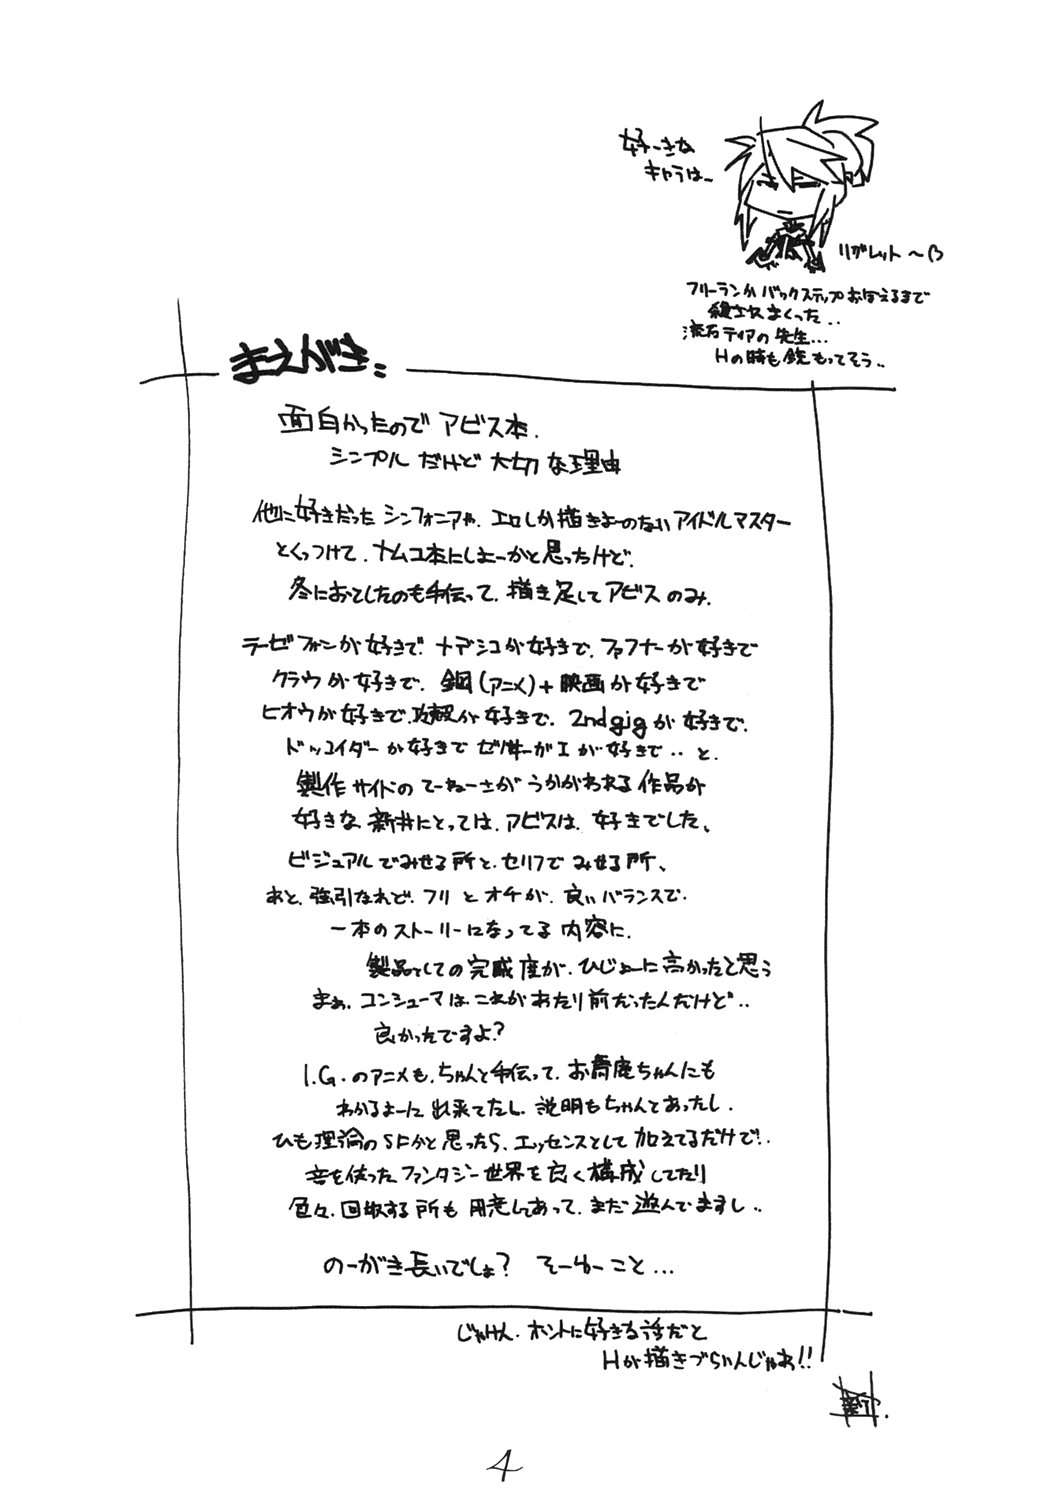 好ーきな
キャラはー
リグレット〜
フリーランかバックステップおぼえるまで
殺されまくった..
流石ティアの先生...
Hの時も銃もってそう..
まえがき..
面白かったのでアビス本.
シンプルだけど大切な理由
他に好きだったシンフォニアや、エロしか描きよーのないアイドルマスター
とくっつけて、ナムコ本にしよーかと思ったけど.
冬におとしたのも手伝って、描き足してアビスのみ.
ラーゼフォンが好きで、ナデシコが好きで、ファフナーが好きで
クラウが好きで、鋼(アニメ)+映画が好きで
ヒオウが好きで、攻殻が好きで、2ndgigが好きで、
ドッコイダーが好きでゼノサーガIが好きで..と、
製作サイドのてーねーさがうかがわれる作品が
好きな新井にとっては、アビスは、好きでした、
ビジュアルでみせる所と、セリフでみせる所、
あと、強引なれど、フリとオチが、良いバランスで、
一本のストーリーになってる内容に、
製品としての完成度が、ひじょーに高かったと思う
まぁ、コンシューマはこれがあたり前だったんだけど..
良かったですよ?
I.G.のアニメも、ちゃんと手伝って、お舞庵ちゃんにも
わかるよーに出来てたし、説明もちゃんとあったし.
ひも理論のSFかと思ったら、エッセンスとして加えてるだけで..
音を使ったファンタジー世界を良く構成してたり
色々、回収する所も用意してあって、まだ遊んでますし..
のーがき長いでしょ? そーゆーこと...
じゃけん、ホントに好きな話だと
Hが描きづらいんじゃあ!!
4